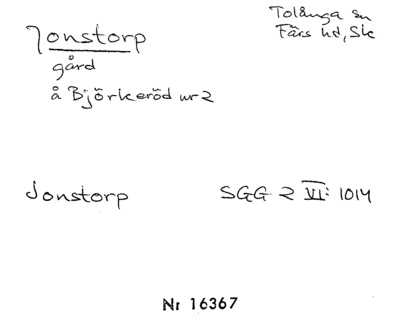 Jonstorp
Tolånga sn
Färs hd, Sk
gård
å Björkeröd nr 2
Jonstorp
SGG 2 VI: 1014
Nr 16367